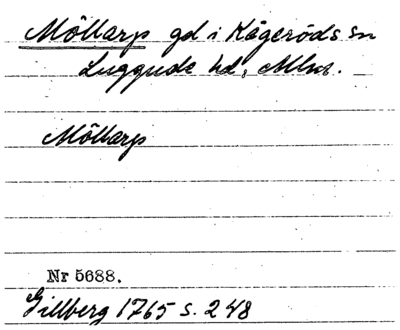 Möllarp gd i Kågeröds sn
Luggude hd, Mlm.
Möllarp
Nr 5688.
Gillberg 1765 s. 248